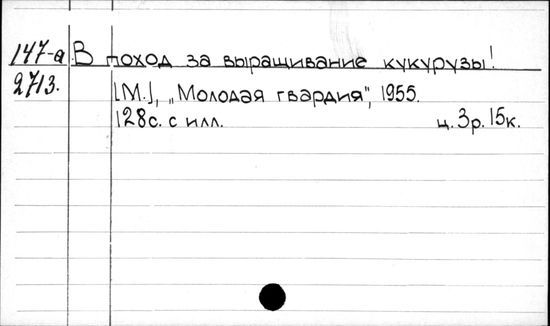 147-а В поход за выращивание кукурузы!
2713. [М.], „Молодая гвардия", 1955.
128с. с илл. ц. 3р. 15к.